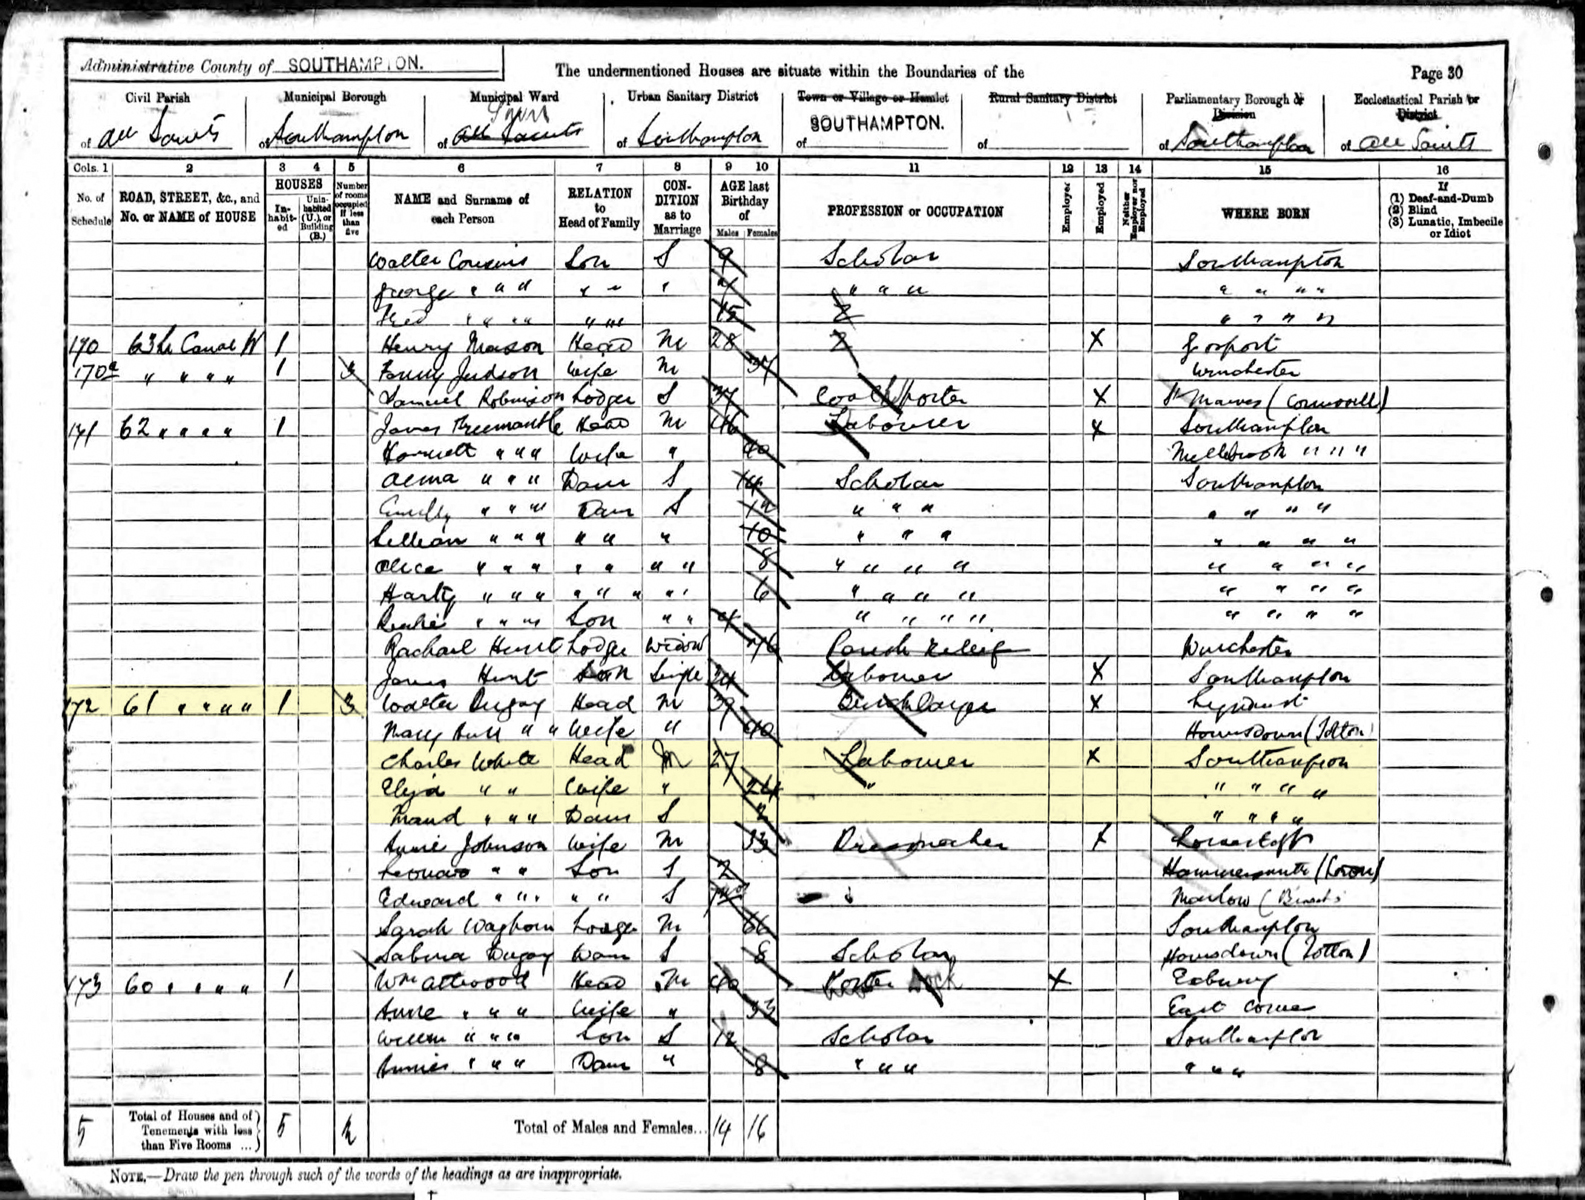 Administrative County of SOUTHAMPTON.
The undermentioned Houses are situate within the Boundaries of the
Page 30
Civil Parish Municipal Borough Municipal Ward Urban Sanitary District Town or Village or Hamlet Rural Sanitary District Parliamentary Borough & Division Ecclesiastical Parish or District
of All Saints of Southampton of All Saints of Southampton of SOUTHAMPTON. of of Southampton of All Saints
Cols. 1 2 3 4 5 6 7 8 9 10 11 12 13 14 15 16
No. of Schedule ROAD, STREET, &c., and No. or NAME of HOUSE HOUSES In-habit-ed Unin-habited (U.), or Building (B.) Number of rooms occupied if less than five NAME and Surname of each Person RELATION to Head of Family CON-DITION as to Marriage AGE last Birthday of Males Females PROFESSION or OCCUPATION Employer Employed Neither Employer nor Employed WHERE BORN If (1) Deaf-and-Dumb (2) Blind (3) Lunatic, Imbecile or Idiot
Walter Cousins Son S 9 Scholar Southampton
George " " " " " " " " " " " " "
Fred " " " " " " " " " " "
170 63 Canal W 1 Henry Mason Head M 28 X Gosport
170a " " " " 1 3 Fanny Judson Wife M Winchester
Samuel Robinson Lodger S 37 Coal Porter X St Mawes (Cornwall)
171 62 " " " " 1 James Freemantle Head M 46 Labourer X Southampton
Harriett " " " Wife " 40 Millbrook " " "
Alma " " " Daur S 14 Scholar Southampton
Emily " " " Daur S 12 " " " " " " "
Lillian " " " " " " 10 " " " " " " "
Alice " " " " " " " 8 " " " " " " " "
" " " " " " " " 6 " " " " " " " "
" " " Son " " 4 " " " " " " " "
Rachael Hunt Lodger Widow 76 Parish Relief Winchester
James Hunt Son Single 34 Labourer X Southampton
172 61 " " " " 1 3 Walter Head M 39 Bricklayer X Lyndhurst
Mary Ann " " Wife " 40 Hounsdown (Totton)
Charles White Head M 27 Labourer X Southampton
Eliza " " Wife " 24 " " " " "
Maud " " " Daur S 2 " " " "
Annie Johnson Wife M 33 Dressmaker X Lowestoft
Leonard " " Son S 2 Hammersmith (London)
Edward " " " " " S Marlow
Sarah Waghorn Lodger M 66 Southampton
Sabina Daur S 8 Scholar Hounsdown (Totton)
173 60 " " " " 1 Wm Attwood Head M 40 Porter Dock X Exbury
Anne " " " Wife " 33 East Cowes
William " " " Son S 12 Scholar Southampton
Annie " " " Daur " 8 " " " " " "
5 Total of Houses and of Tenements with less than Five Rooms ... 5 2 Total of Males and Females... 14 16
NOTE.—Draw the pen through such of the words of the headings as are inappropriate.